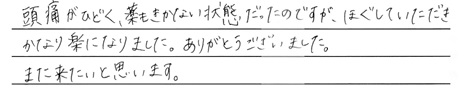 頭痛がひどく、薬もきかない状態だったのですが、ほぐしていただき
かなり楽になりました。ありがとうございました。
また来たいと思います。